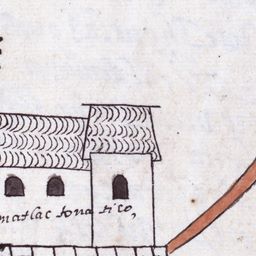 matlac tona tico,